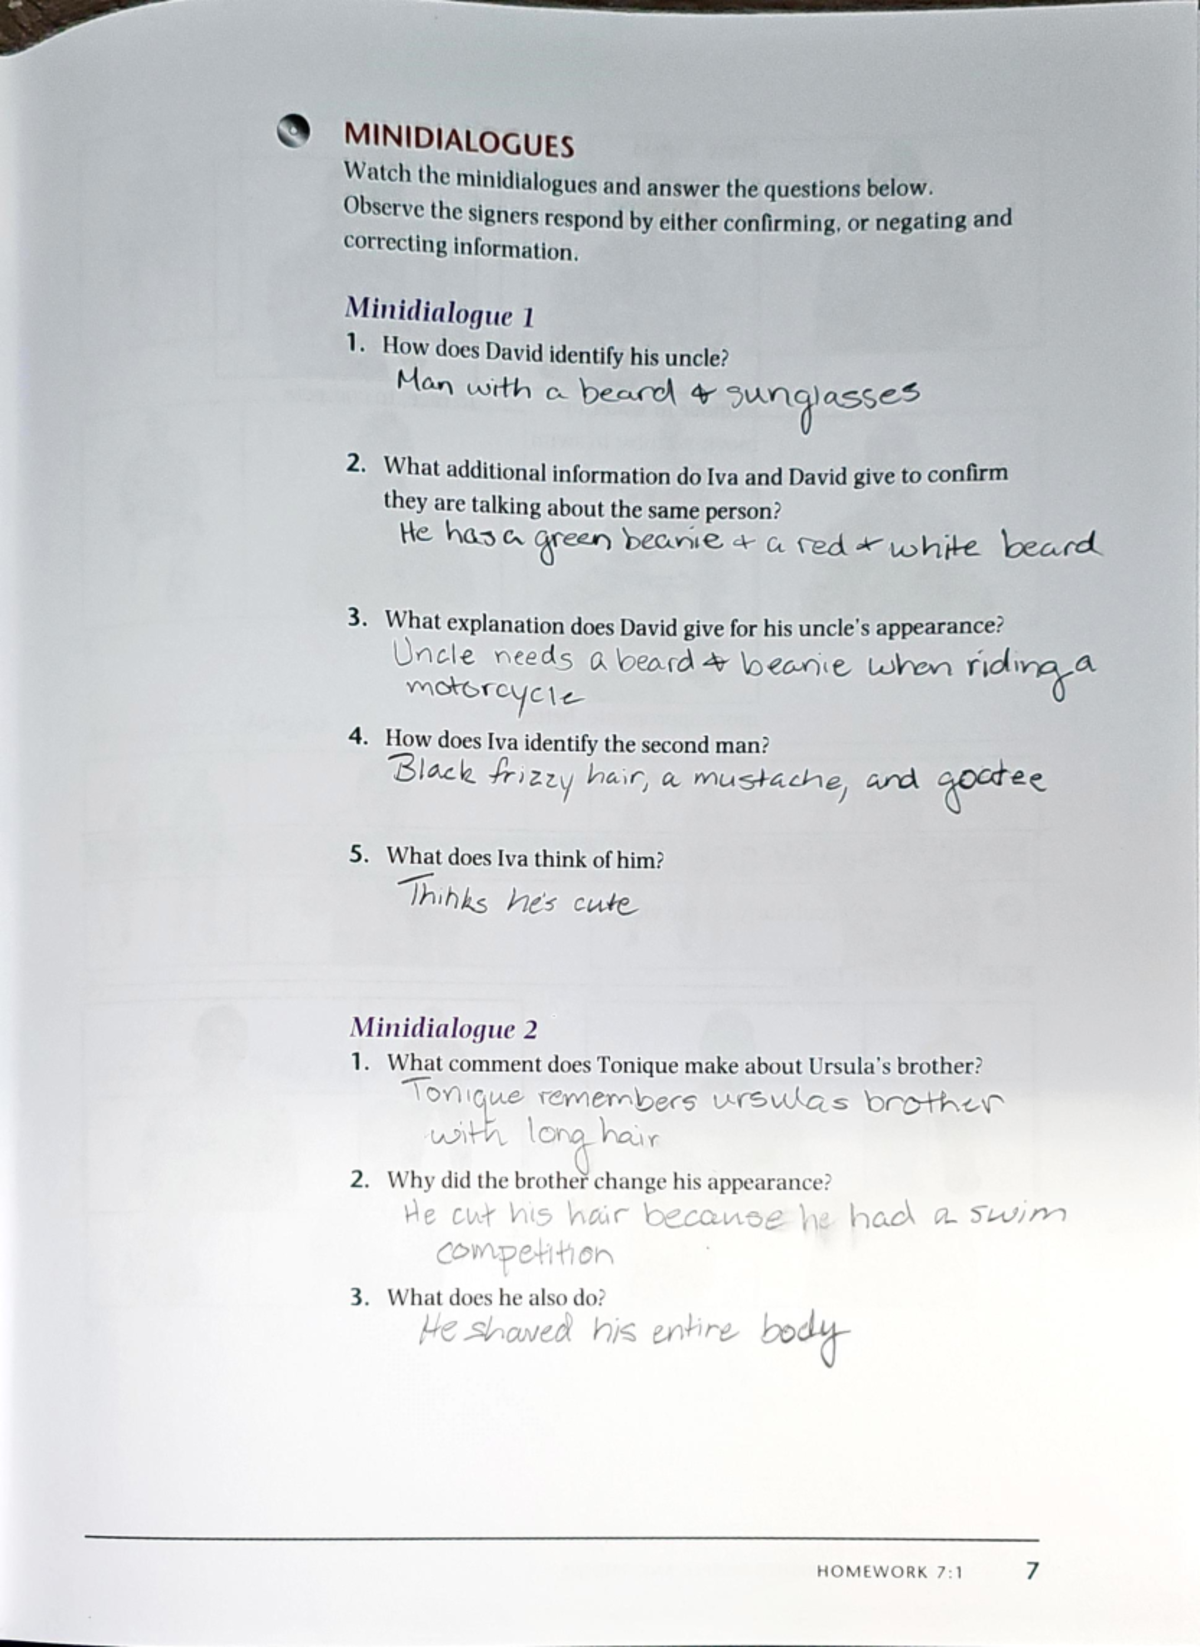 MINIDIALOGUES
Watch the minidialogues and answer the questions below.
Observe the signers respond by either confirming, or negating and
correcting information.
Minidialogue 1
1. How does David identify his uncle?
Man with a beard & sunglasses
2. What additional information do Iva and David give to confirm
they are talking about the same person?
He has a green beanie & a red & white beard
3. What explanation does David give for his uncle's appearance?
Uncle needs a beard & beanie when riding a
motorcycle
4. How does Iva identify the second man?
Black frizzy hair, a mustache, and goatee
5. What does Iva think of him?
Thinks he's cute
Minidialogue 2
1. What comment does Tonique make about Ursula's brother?
Tonique remembers ursulas brother
with long hair
2. Why did the brother change his appearance?
He cut his hair because he had a swim
competition
3. What does he also do?
He shaved his entire body
HOMEWORK 7:1 7